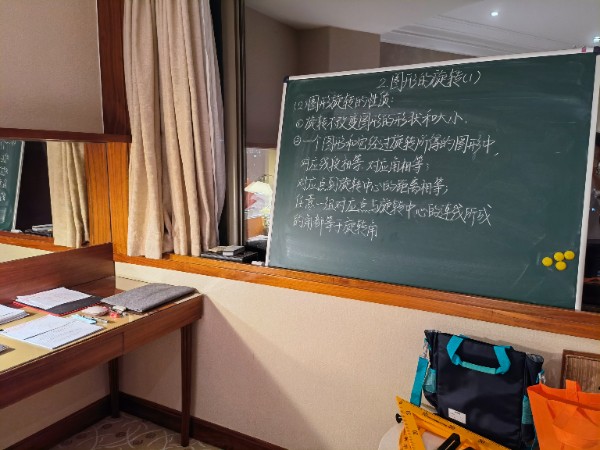 2.图形的旋转(1)
(2)图形旋转的性质:
① 旋转不改变图形的形状和大小.
② 一个图形和它经过旋转所得的图形中,
对应线段相等 对应角相等;
对应点到旋转中心的距离相等;
任意一组对应点与旋转中心的连线所成
的角都等于旋转角